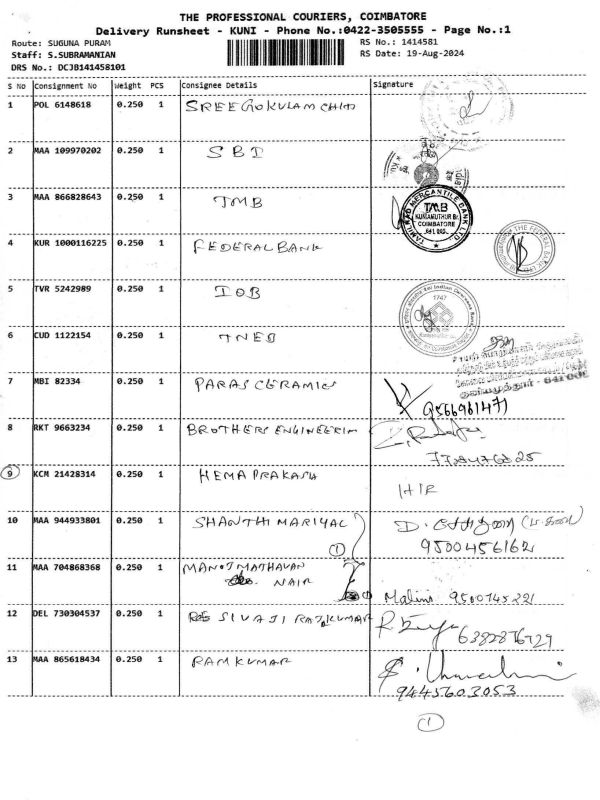 THE PROFESSIONAL COURIERS, COIMBATORE
Delivery Runsheet - KUNI - Phone No.:0422-3505555 - Page No.:1
Route: SUGUNA PURAM
RS No.: 1414581
Staff: S.SUBRAMANIAN
RS Date: 19-Aug-2024
DRS No.: DCJB141458101
S No Consignment No Weight PCS Consignee Details Signature
1 POL 6148618 0.250 1 SREE GOKULAM CHITS
2 MAA 109970202 0.250 1 SBI
3 MAA 866828643 0.250 1 TMB
TAMILNAD MERCANTILE BANK LTD.
TMB
KUNIAMUTHUR Br.
COIMBATORE
641 008.
4 KUR 1000116225 0.250 1 FEDERAL BANK
THE FEDERAL BANK LTD
5 TVR 5242989 0.250 1 IOB
1747
6 CUD 1122154 0.250 1 TNEB
7 MBI 82334 0.250 1 PARAS CERAMICS
9566961471
8 RKT 9663234 0.250 1 BROTHERS ENGINEERIN
9 KCM 21428314 0.250 1 HEMA PRAKASH
HIR
10 MAA 944933801 0.250 1 SHANTHI MARIYAL
1
9500456162
11 MAA 704868368 0.250 1 MANOJ MATHAVAN
NAIR
Malini 9500745221
12 DEL 730304537 0.250 1 SIVAJI RAJKUMAR
13 MAA 865618434 0.250 1 RAMKUMAR
9445603053
1